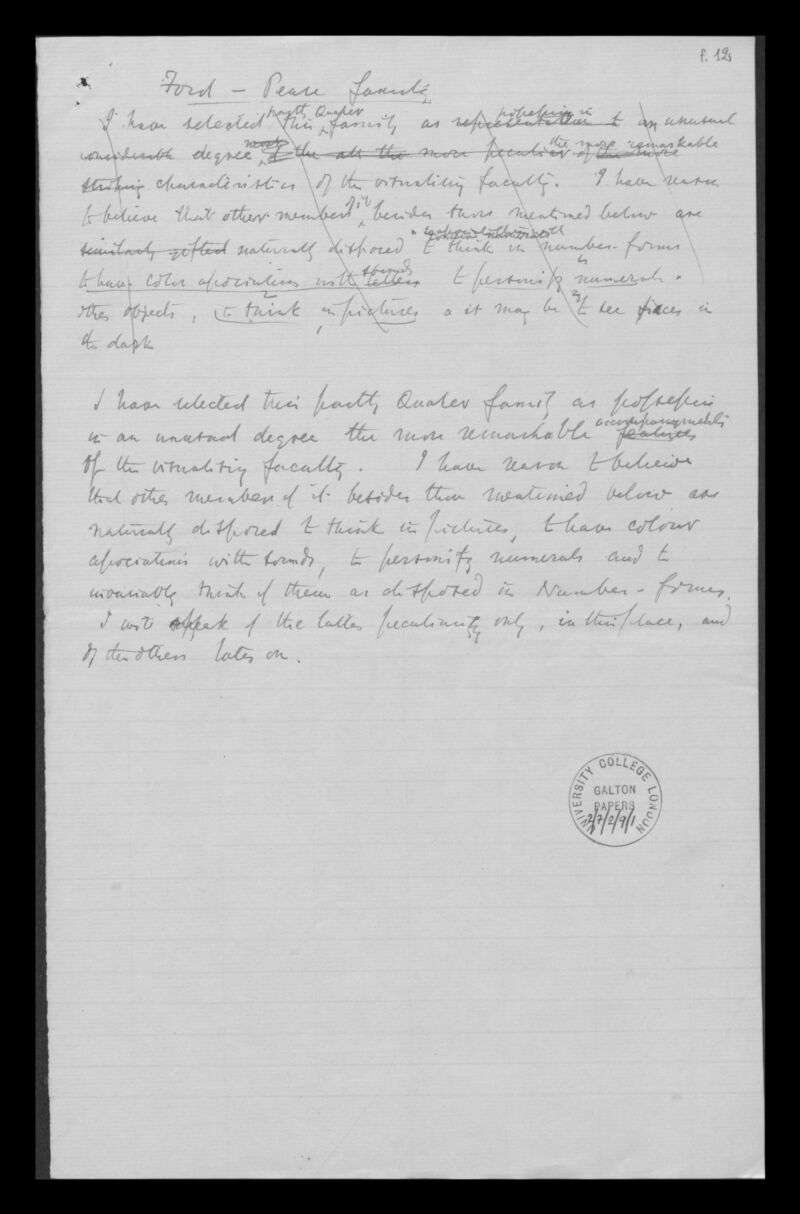 f. 12
Ford - Pease family
partly Quaker possessing in
I have selected this family as representative t an unusual
most the more remarkable
considerable degree of the all the more peculiar of the more
striking characteristics of the visualising faculty. I have reason
of it
to believe that other members besides those mentioned below are
similarly gifted naturally disposed to think in number-forms
sounds
to have color associations with letters to personify numerals
other objects, to think in pictures a it may be to see faces in
the dark
I have selected this partly Quaker family as possessing
accompaniments
in an unusual degree the more remarkable features
of the visualising faculty. I have reason to believe
that other members of it besides those mentioned below are
naturally disposed to think in pictures, to have colour
associations with sounds, to personify numerals and to
invariably think of them as disposed in Number-forms.
I will speak of the latter peculiarity only, in this place, and
of the others later on.
UNIVERSITY COLLEGE LONDON
GALTON
PAPERS
2/7/2/9/1